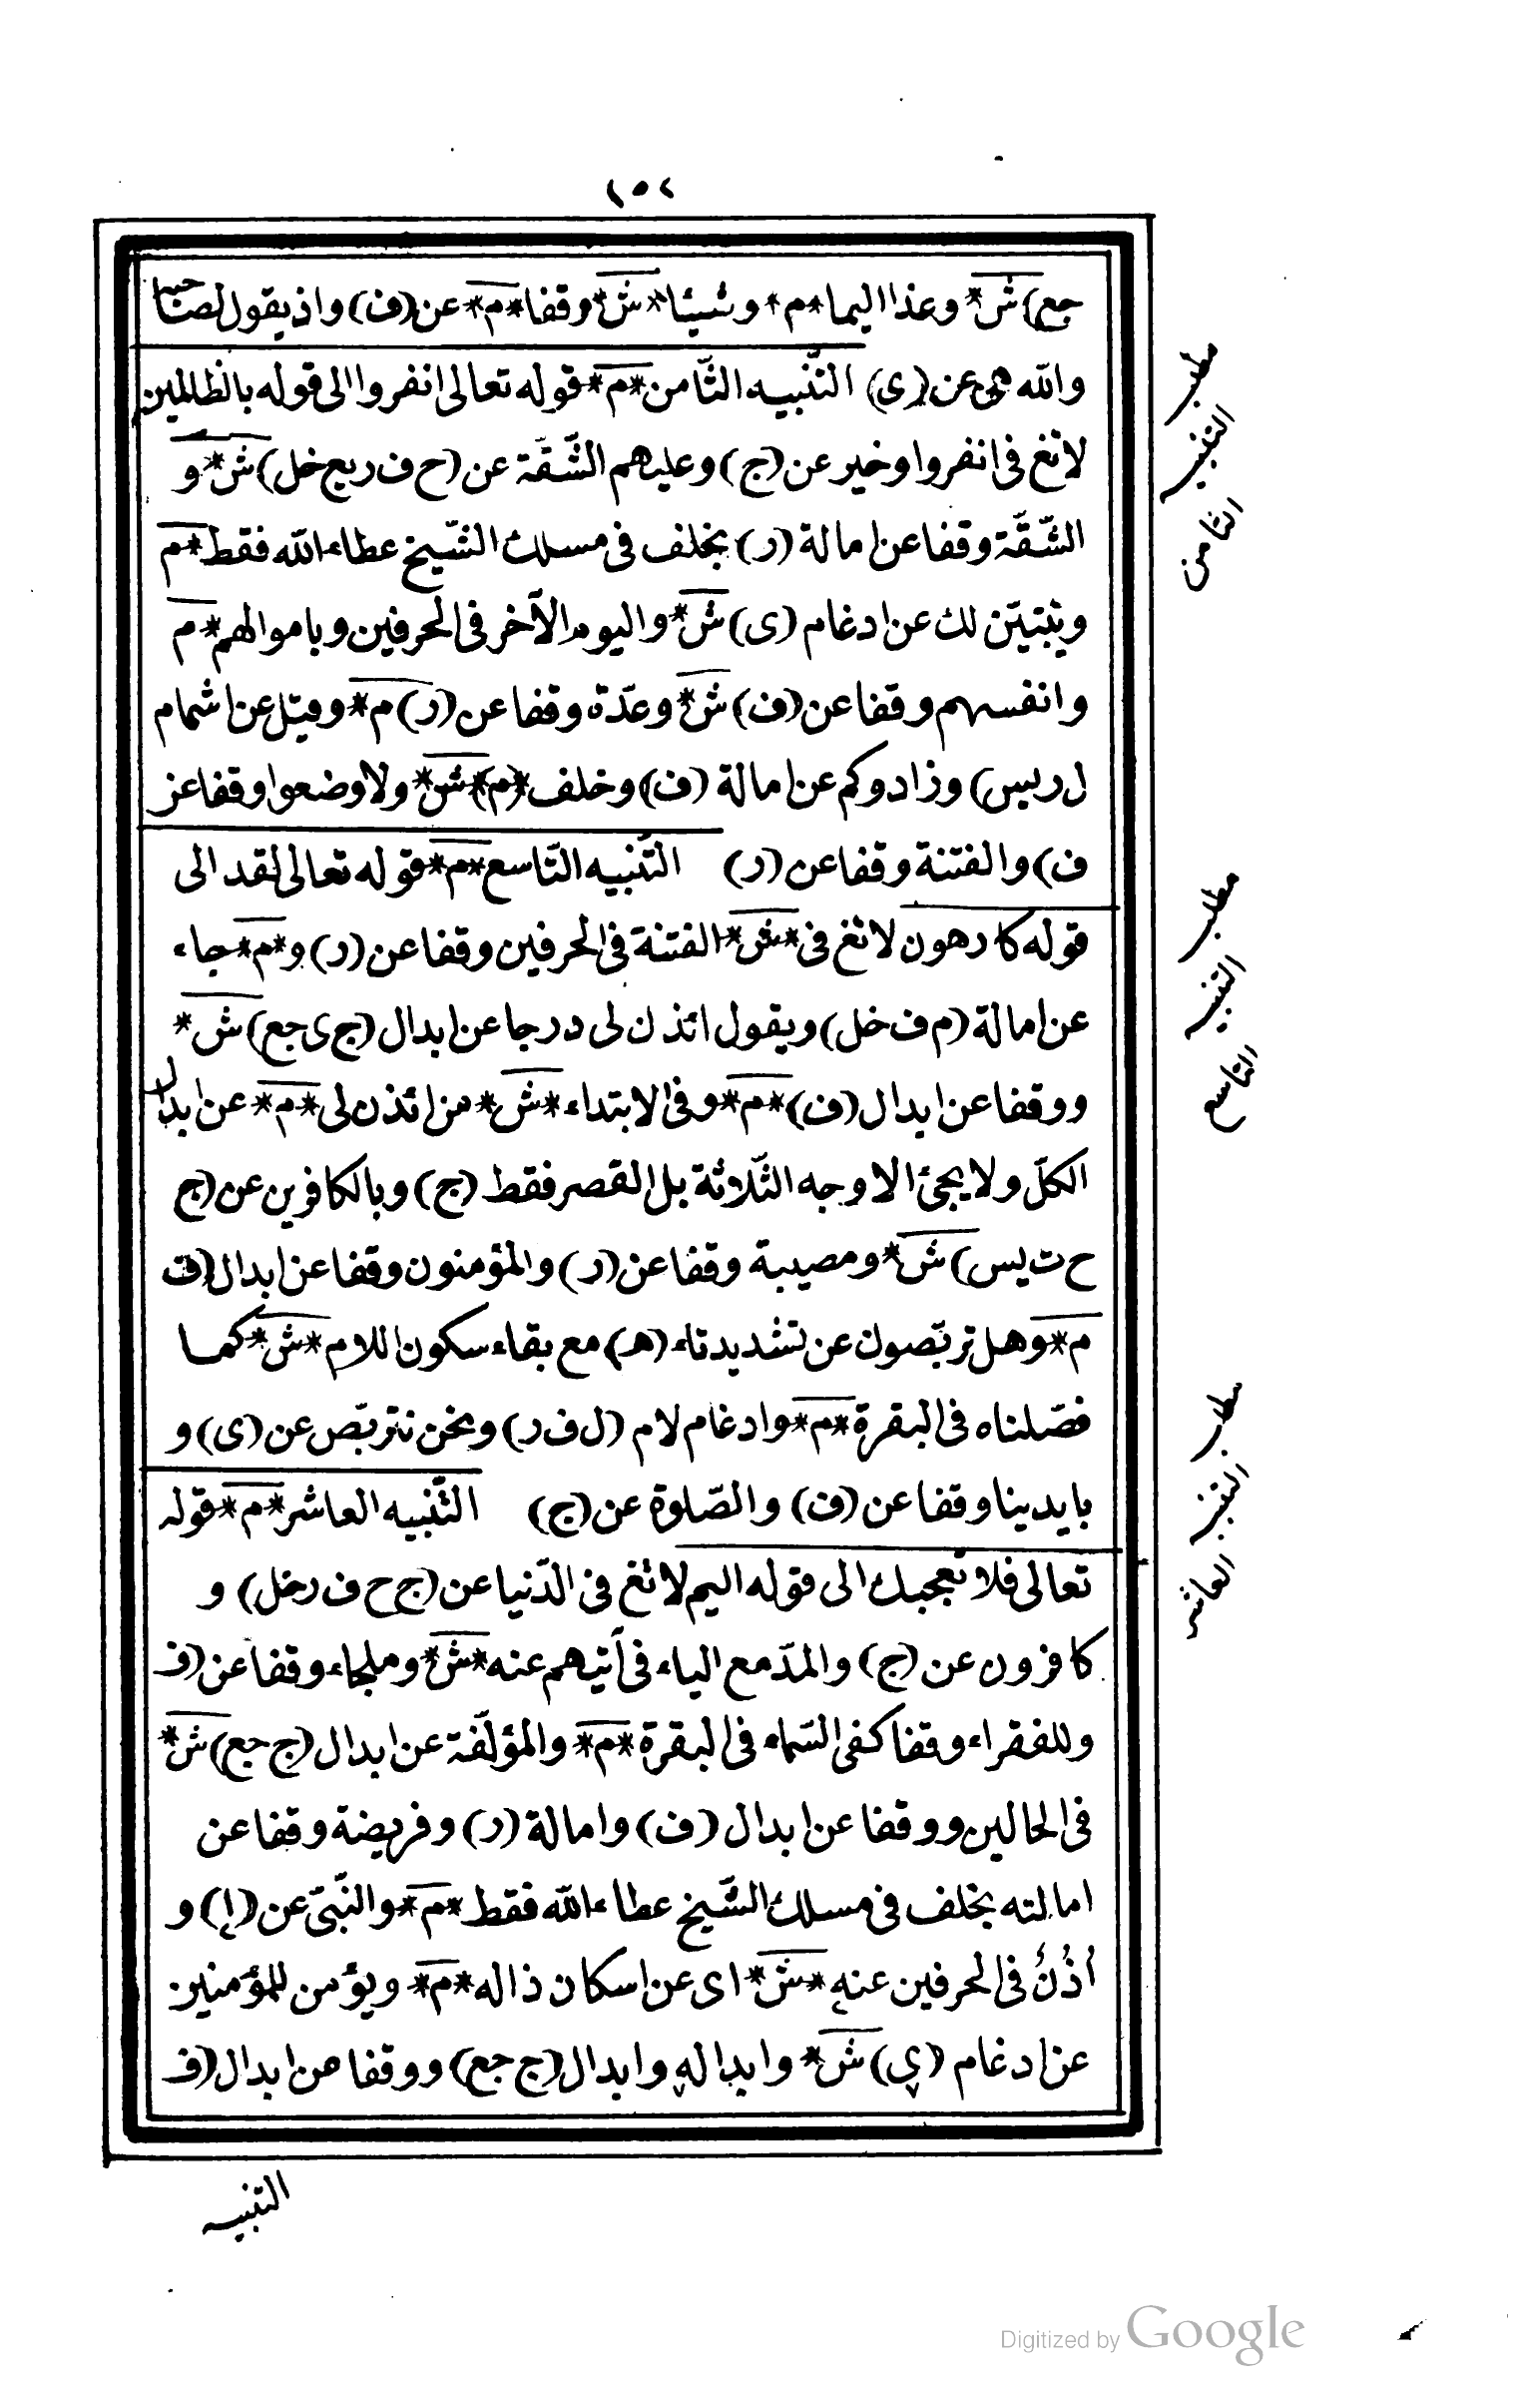 ١٥٢
جع) ش* وعذابا اليما *م* وشيئا *ش* وقفا *م* عن (ف) واذ يقول لصاحبه
والله هى عن (ى) التّنبيه الثّامن *م* قوله تعالى انفروا الى قوله بالظالمين
لا تغ فى انفروا وخير عن (ج) وعليهم الشّقّة عن (ح ف ربع خل) ش* و
الشّقّة وقفا عن امالة (ر) بخلف فى مسلك الشّيخ عطاء الله فقط *م
ويتبيّن لك عن ادغام (ى) ش* واليوم الآخر فى الحرفين وباموالهم *م
وانفسهم وقفا عن (ف) ش* وعدّة وقفا عن (ر) م* وقيل عن اشمام
ل ر يس) وزادوكم عن امالة (ف) وخلف *(م)* ش* ولاوضعوا وقفا عن
ف) والفتنة وقفا عن (ر) التّنبيه التّاسع *م* قوله تعالى لقد الى
قوله كارهون لا تغ فى *ش* الفتنة فى الحرفين وقفا عن (ر) و*م* جاء
عن امالة (م ف خل) ويقول ائذن لى درجا عن ابدال (ج ى جع) ش*
ووقفا عن ابدال (ف) *م* وفى الابتداء *ش* من ائذن لى *م* عن ابدال
الكلّ ولا يجئ الاوجه الثّلاثة بل القصر فقط (ج) وبالكافرين عن (ج
ح ت يس) ش* ومصيبة وقفا عن (ر) والمؤمنون وقفا عن ابدال (ف
م* وهل تربّصون عن تشديد تاء (هـ) مع بقاء سكون اللام *ش* كما
فصّلناه فى البقرة *م* وادغام لام (ل ف ر) ونحن نتربّص عن (ى) و
بايدينا وقفا عن (ف) والصّلوة عن (ج) التّنبيه العاشر *م* قوله
تعالى فلا تعجبك الى قوله اليم لا تغ فى الدّنيا عن (ج ح ف ر خل) و
كافرون عن (ج) والمدّ مع الياء فى آتيهم عنه *ش* وملجاء وقفا عن (ف
وللفقراء وقفا كفى السّماء فى البقرة *م* والمؤلّفة عن ابدال (ج جع) ش*
فى الحالين ووقفا عن ابدال (ف) وامالة (ر) وفريضة وقفا عن
امالته بخلف فى مسلك الشّيخ عطاء الله فقط *م* والنّبىّ عن (ا) و
اُذُنٌ فى الحرفين عنه *ش* اى عن اسكان ذاله *م* ويؤمن للمؤمنين
عن ادغام (ى) ش* وابداله وابدال (ج جع) ووقفا عن ابدال (ف
مطلب
التنبيه
الثامن
مطلب
التنبيه
التاسع
مطلب
التنبيه
العاشر
التنبيه
Digitized by Google